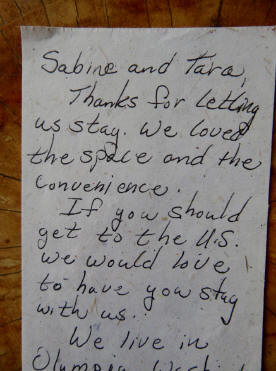 Sabine and Tara,
Thanks for letting
us stay. We loved
the space and the
convenience.
If you should
get to the U.S.
we would love
to have you stay
with us.
We live in
Olympia, Wash